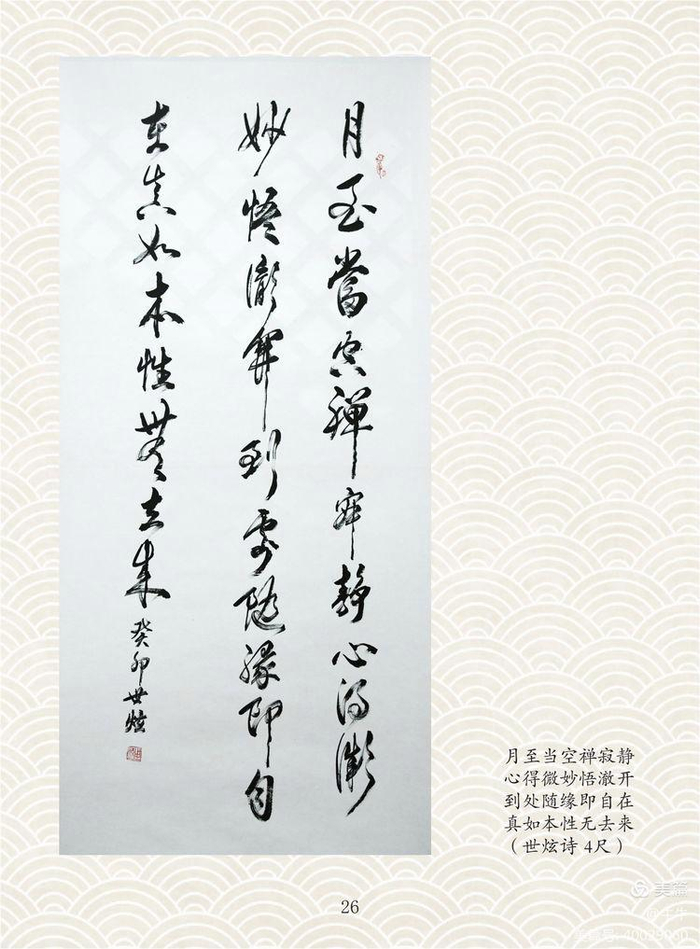 月至當空禅寂静心得微
妙悟澈開到處随緣即自
在真如本性無去来
癸卯世炫
月至当空禅寂静
心得微妙悟澈开
到处随缘即自在
真如本性无去来
（世炫诗 4尺）
26
美篇